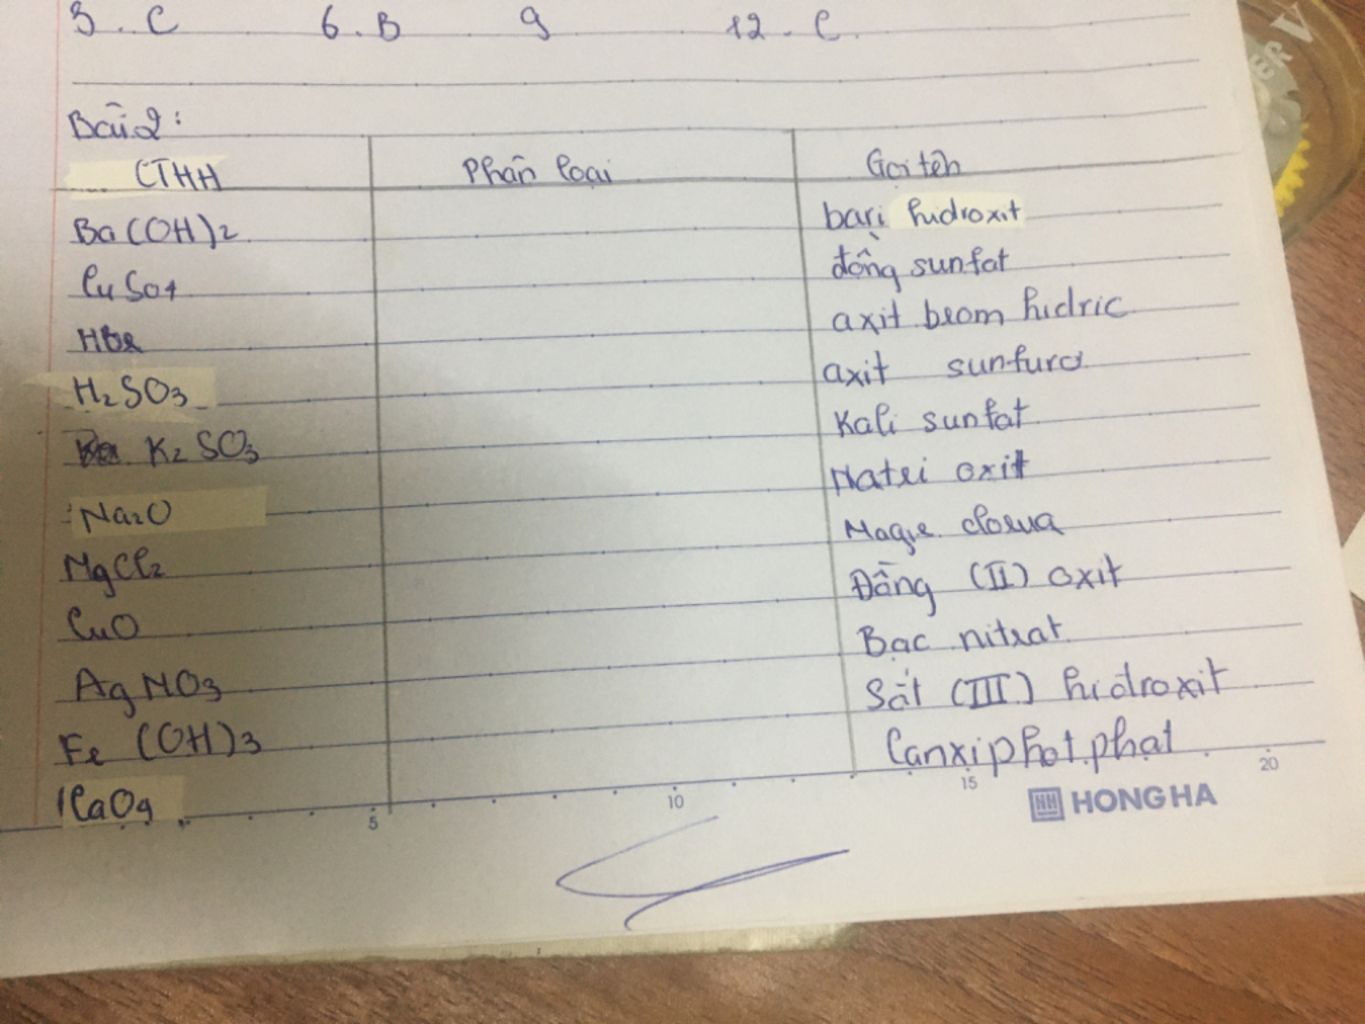 3. C 6. B 9 12. C.
Bài 2:
CTHH Phân loại Gọi tên
Ba(OH)2 bari hidroxit
CuSO4 đồng sunfat
HBr axit brom hidric
H2SO3 axit sunfurơ
K2SO3 Kali sunfat
Na2O Natri oxit
MgCl2 Magie clorua
CuO Đồng (II) oxit
AgNO3 Bạc nitrat
Fe(OH)3 Sắt (III) hidroxit
Canxi phot phat
5 10 15 20
HONG HA